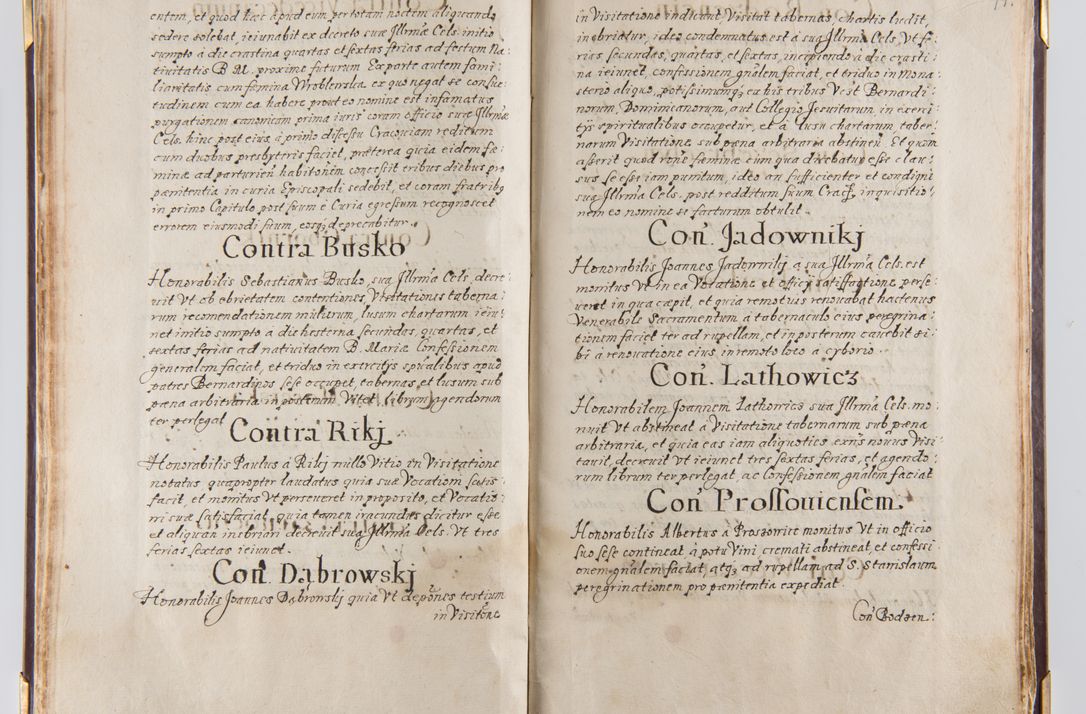 entem, et quod hæc apud eum per totam noctem aliquando
sedere solebat, ieiunabit ex decreto suæ Jllrmæ Cels. initio
sumpto à die crastina quartas et sextas ferias ad festum Na:
tiuitatis B. M. proximè futurum Ex parte autem fami:
liaritatis cum fæmina Wroblenska ex quo negat se consue:
tudinem cum ea habere prout eo nomine est infamatus
purgationem canonicam prima iuris coram officio suæ Jllrmæ
Cels. hinc post eius à primo discessu Cracouiam reditum
cum duobus presbyteris faciet, præterea quia eidem fæ:
minæ ad parturien habitõnem concessit tribus diebus pro
pænitentia in curia Episcopali sedebit, et coram fratribq
in primo Capitulo post suum è Curia egressum recognoscet
errorem eiusmodi suum, eosq; deprecabitur.
Contra Busko
Honorabilis Sebastianus Busko, sua Jllrma Cels. decre:
uit Vt ob ebrietatem contentiones, Visitationes taberna:
rum recomendationem mulierum, lusum chartarum ieiu:
net initio sumpto à die hesterna secundas, quartas, et
sextas ferias ad natiuitatem B. Mariæ Confessionem
generalem faciat, et triduo in exercitys sp̃ualibus apud
patres Bernardinos sese occupet, tabernas, et lusum sub
pæna arbitraria in posterum Vitet, librum agendorum
ter perlegat.
Contra Rikj
Honorabilis Paulus à Rikj nullo Vitio in Visitatione
notatus quapropter laudatus quia suæ Vocationi satis
facit, et monitus Vt perseueret in proposito, et Vocatio:
ni suæ satisfaciat, quia tamen iracundus dicitur esse
et aliquan inebriari decreuit sua Jllrma Cels. Vt tres
ferias sextas ieiunet.
Con. Dąbrowskj
Honorabilis Joannes Dąbronskj quia Vt depõnes testium
in Visitõne
in Visitatione indicant Visitat tabernas chartis ludit,
inebriatur, ideo condemnatus est à sua Jllrma Cels. Vt fe:
rias secundas, quartas, et sextas, incipiendo à die crasti:
na ieiunet, confessionem gñalem faciat, et triduo in mona:
sterio aliquo, potissimumq; ex his tribus Vest Bernardi:
norum, Dominicanorum, aut Collegio Jesuitarum in exerci:
tys spiritualibus occupetur, et à lusu chartarum taber:
narum Visitatione sub pæna arbitraria abstineat. Et quoniam
asserit quod rone fæminæ cum qua dicebatur esse clau:
sus se esse iam punitum, ideo an sufficienter et condigni
sua Jllrma Cels. post redditum suum Crac. inquisitio:
nem eo nomine se facturum obtulit.
Con. Jadownikj
Honorabilis Joannes Jadownikj à sua Jllrma Cels. est
monitus Vt in ea Vocatione et officij satisfactione perse:
ueret in qua cæpit, et quia remotius renouabat hactenus
Venerabile Sacramentum à tabernaculo eius peregrina:
tionem faciet ter ad rupellam, et in posterum cauebit si:
bi à renouatione eius in remoto loco à cyborio.
Con. Lathowicz
Honorabilem Joannem Lathowicz sua Jllrma Cels. mo:
nuit Vt abstineat à Visitatione tabernarum sub pæna
arbitraria, et quia eas iam aliquoties extis nouus Visi:
tauit, decreuit Vt ieiunet tres sextas ferias, et agendo:
rum librum ter perlegat, ac Confessionem gñalem faciat
Con. Prossouiensem.
Honorabilis Albertus à Proszowice monitus Vt in officio
suo sese contineat à potu Vini cremati abstineat, et confessi:
onem gñalem faciat, atq; ad rupellam ad S. Stanislaum
peregrinationem pro pænitentia expediat.
Con Bodzen: